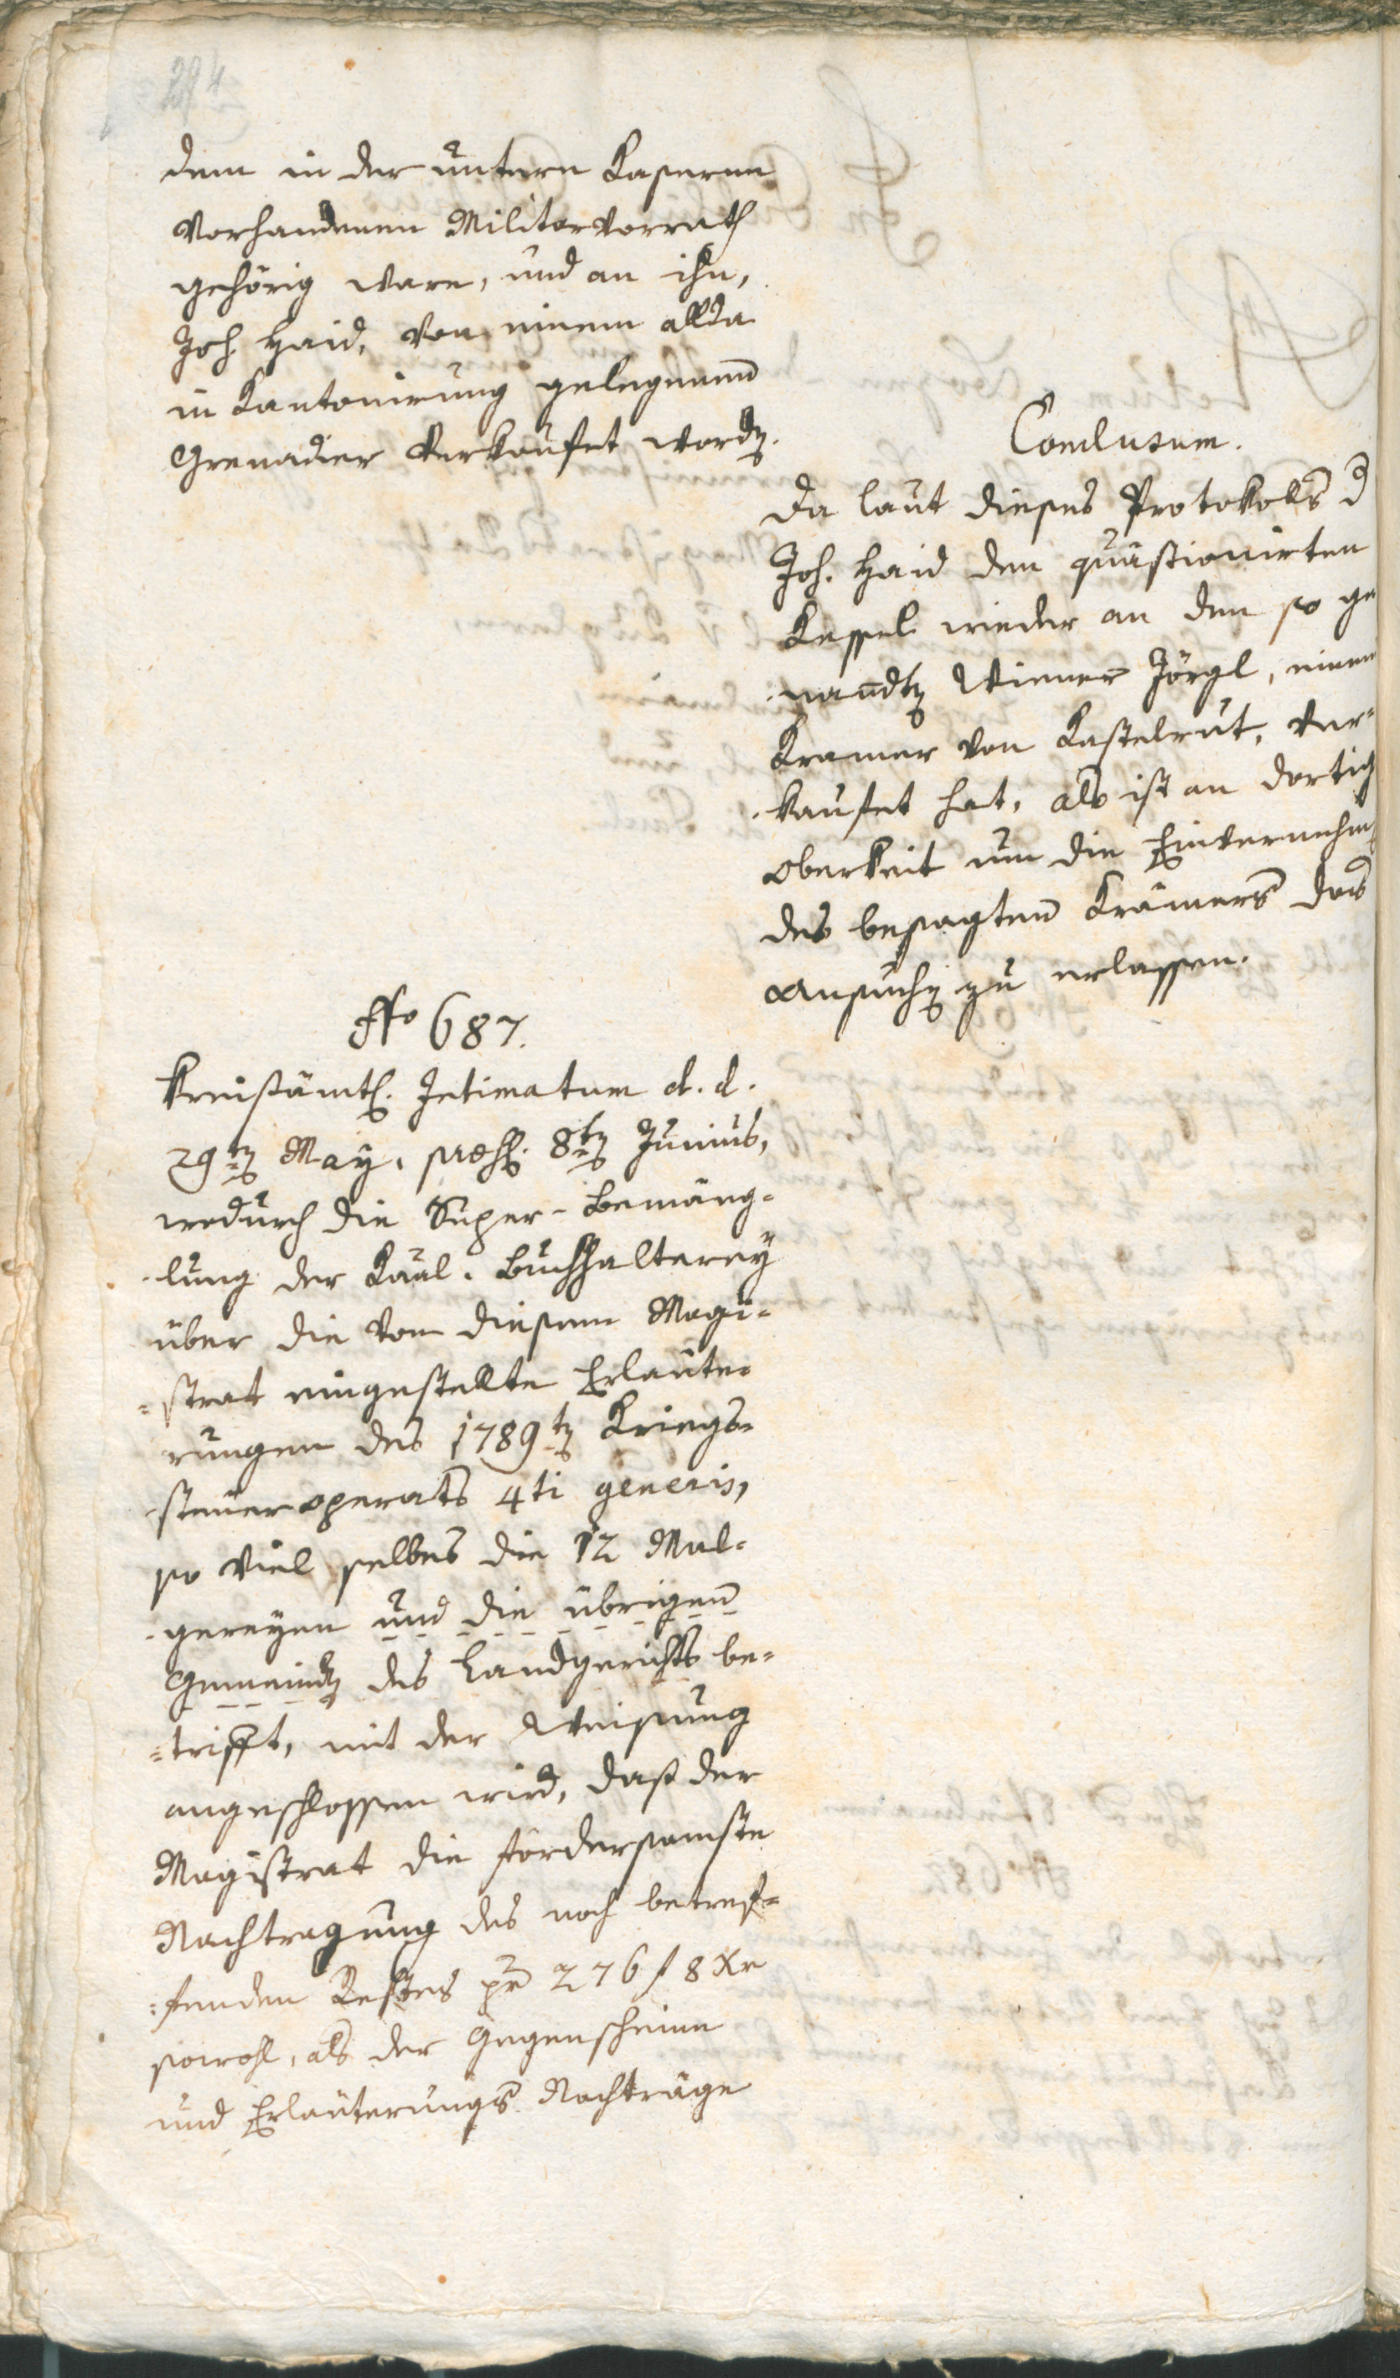 294
dem in der untern Kaserne
vorhandenen Militarvorrath
gehörig ware, und an ihn,
Joh. Haid, von einem allda
in Kantonirung gelegenen
Grenadier verkaufet worden.
Conclusum.
Da laut dieses Protokolls d
Joh. Haid den quästionirten
Kessel wieder an den so ge
nandten Wiener Jörgl, einem
Kramer von Kastelrut, ver=
kaufet hat, als ist an dortig
Oberkeit um die Einvernehm
des besagten Krämers das
Ansuchen zu erlassen.
No 687.
Kreisämtl. Intimatum d. d.
29ten May, præs. 8ten Junius,
wodurch die Super-Bemäng=
lung der Kaal. Buchhalterey
über die von diesem Magi=
=strat eingestellte Erläute=
rungen des 1789ten Kriegs=
steueroperats 4ti generis,
so viel selbes die 12 Mal=
greyen und die übrigen
Gemeinden des Landgerichts be=
=trifft, mit der Weisung
angeschlossen wird, daß der
Magistrat die fördersamste
Nachtragung des noch betref=
=fenden Restes pr 276 f 8 Xr
sowohl, als der Gegenscheine
und Erläuterungs Nachträge